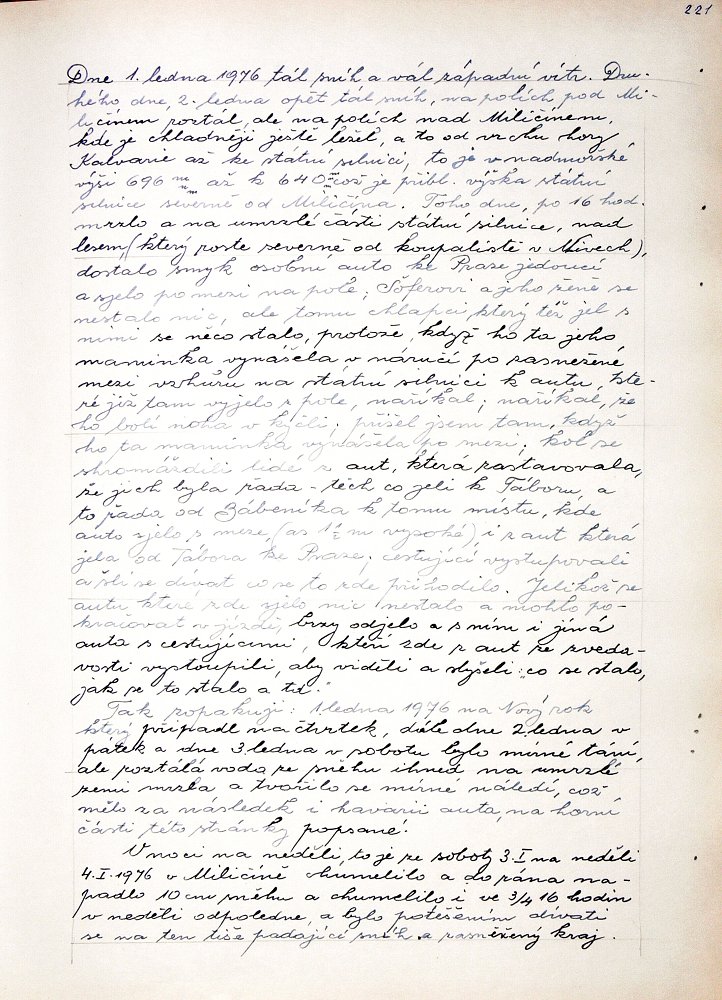 221
Dne 1. ledna 1976 tál sníh a vál západní vítr. Dru-
hého dne, 2. ledna opět tál sníh, na polích, pod Mi-
ličínem roztál, ale na polích nad Miličínem,
kde je chladněji ještě ležel, a to od vrchu hory
Kalvarie až ke státní silnici, to je v nadmořské
výši 696 m až k 640 m což je přibl. výška státní
silnice severně od Miličína. Toho dne, po 16 hod.
mrzlo a na umrzlé části státní silnice, nad
lesem, (který roste severně od koupaliště v Mivech),
dostalo smyk osobní auto ke Praze jedoucí
a sjelo po mezi na pole; Šoferovi a jeho ženě se
nestalo nic, ale tomu chlapci, který též jel s
nimi se něco stalo, protože, když ho ta jeho
maminka vynášela v náručí po zasněžené
mezi vzhůru na státní silnici k autu, kte-
ré již tam vyjelo z pole naříkal; naříkal, že
ho bolí noha v kyčli; přišel jsem tam, když
ho ta maminka vynášela po mezi; kol se
shromáždili lidé z aut, která zastavovala,
že jich byla řada - těch co jeli k Táboru, a
to řada od Zábeníka k tomu místu, kde
auto sjelo s meze, (as 1 1/2 m vysoké) i z aut která
jela od Tábora ke Praze; cestující vystupovali
a šli se dívat co se to zde přihodilo. Jelikož se
autu které zde sjelo nic nestalo a mohlo po-
kračovat v jízdě, brzy odjelo a s ním i jiná
auta s cestujícími, kteří zde z aut ze zvěda-
vosti vystoupili, aby viděli a slyšeli: "co se stalo,
jak se to stalo a td."
Tak zopakuji: 1 ledna 1976 na Nový rok
který připadl na čtvrtek, dále dne 2. ledna v
pátek a dne 3. ledna v sobotu bylo mírné tání,
ale roztálá voda ze sněhu ihned na umrzlé
zemi mrzla a tvořilo se mírné náledí, což
mělo za následek i havarii auta, na horní
části této stránky popsané!
V noci na neděli, to je ze soboty 3. I na neděli
4. I. 1976 v Miličíně chumelilo a do rána na-
padlo 10 cm sněhu a chumelilo i ve 3/4 16 hodin
v neděli odpoledne, a bylo potěšením dívati
se na ten tiše padající sníh a zasněžený kraj.